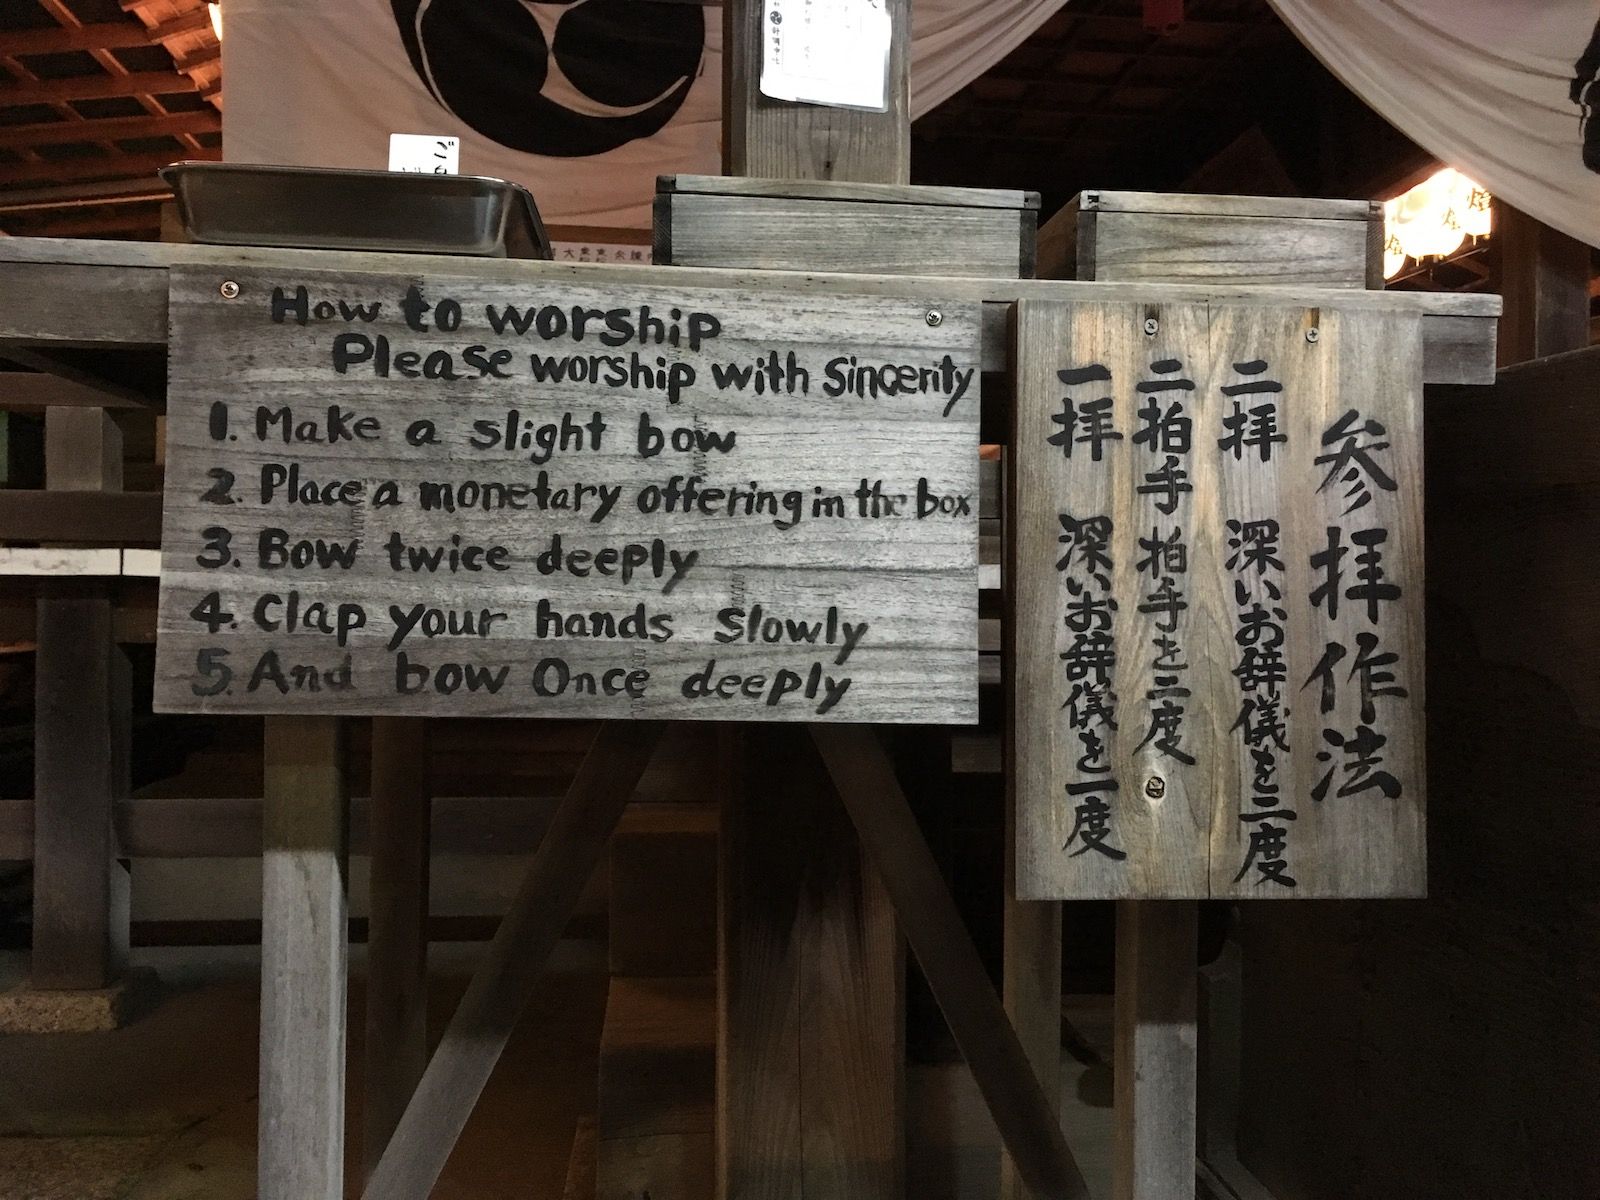 How to worship
Please worship with Sincerity
1. Make a slight bow
2. Place a monetary offering in the box
3. Bow twice deeply
4. Clap your hands slowly
5. And bow Once deeply
参拝作法
二拝 深いお辞儀を二度
二拍手 拍手を二度
一拝 深いお辞儀を一度